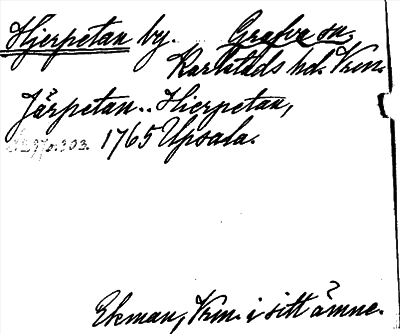 Hjerpetan by. Grava sn,
Karlstads hd. Vrm.
Järpetan.. Hierpetan,
1765 Upsala.
Ekman, Vrm. i sitt ämne.